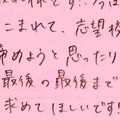 こまれて、志望校
諦めようと思ったり
最後の最後まで
求めてほしいです!